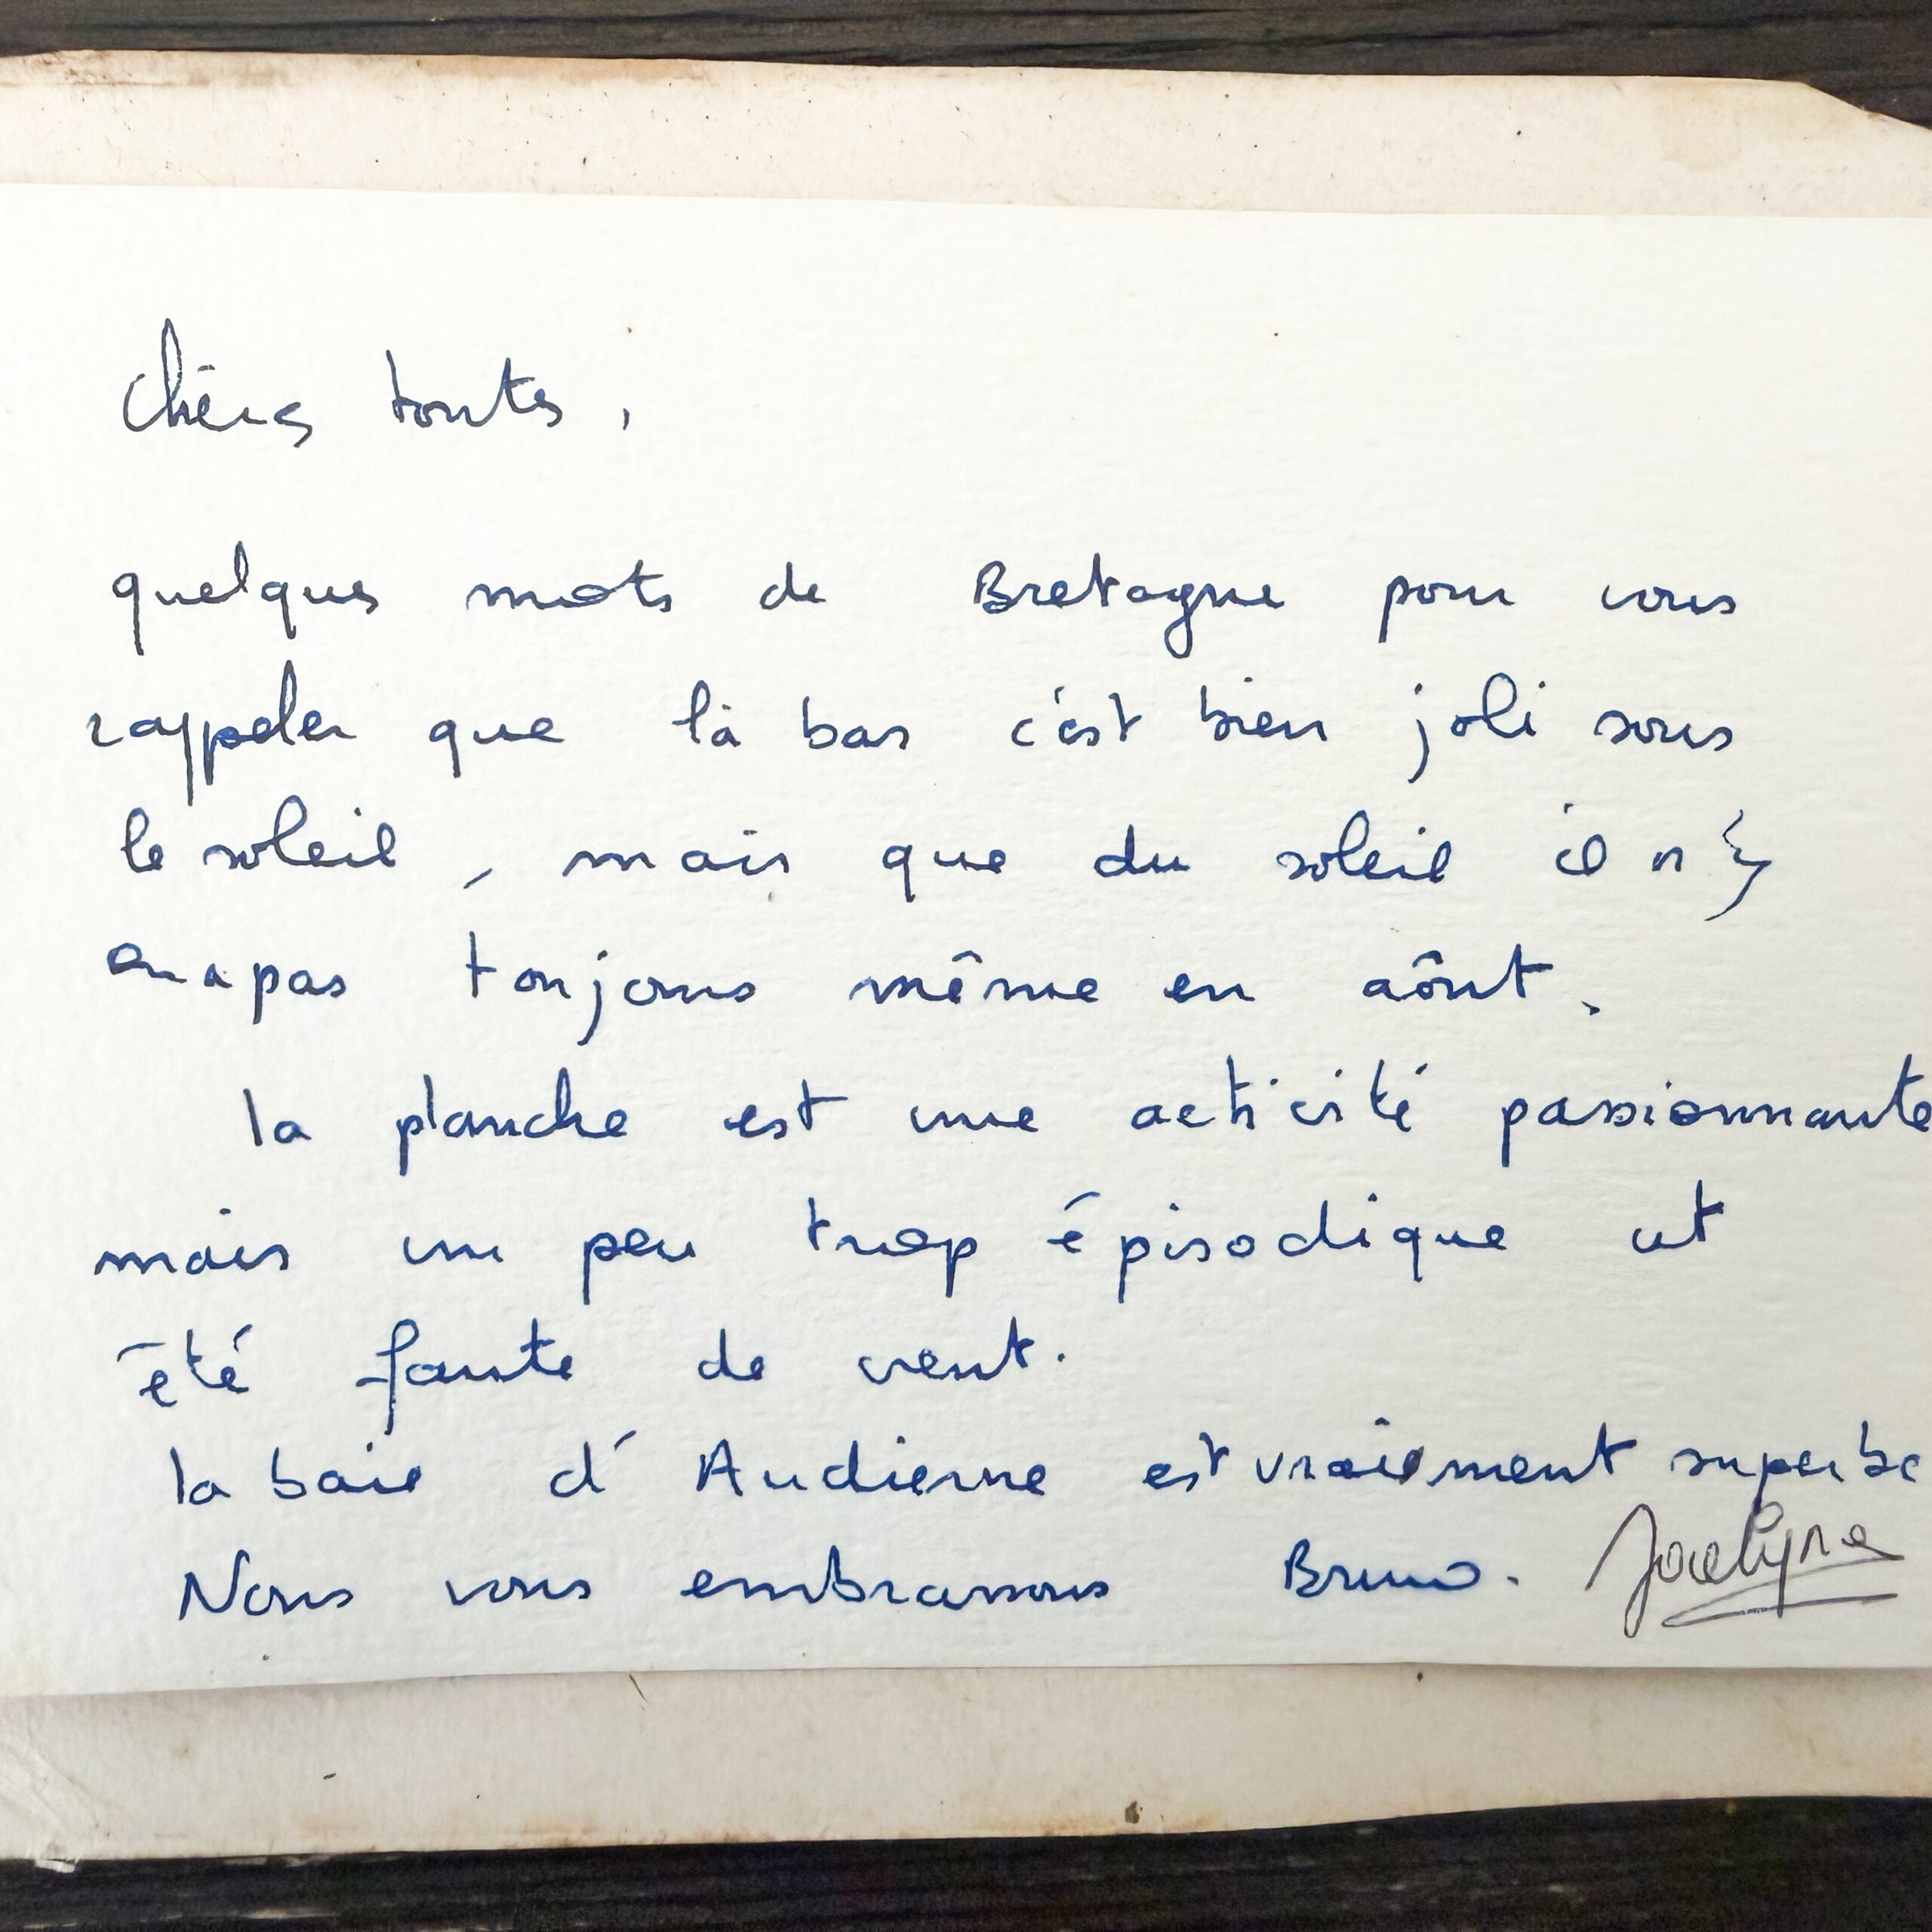 Chères toutes,
quelques mots de Bretagne pour vous
rappeler que là bas c'est bien joli sous
le soleil, mais que du soleil il n'y
en a pas toujours même en aôut.
la planche est une activité passionnante
mais un peu trop épisodique cet
été faute de vent.
la baie d'Audierne est vraiement superbe
Nous vous embrassons Bruno. Jocelyne